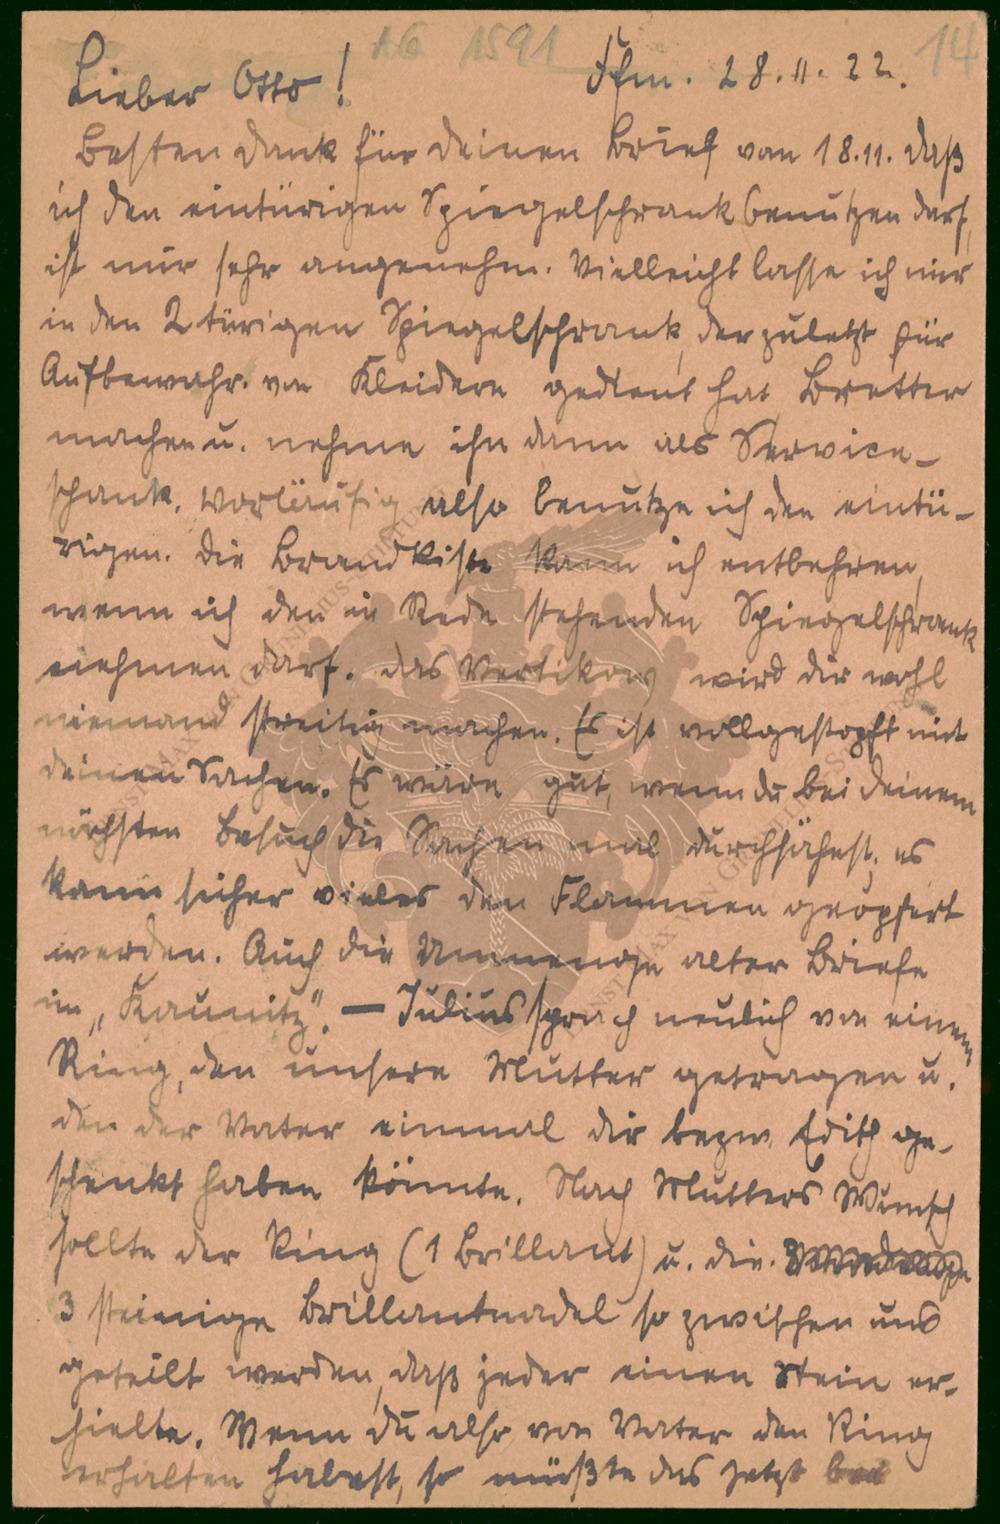 AG 1591 14
Lieber Otto! Ffm. 28.11.22.
Besten Dank für deinen Brief vom 18.11. Daß
ich den eintürigen Spiegelschrank benutzen darf,
ist mir sehr angenehm. Vielleicht lasse ich mir
in den 2 türigen Spiegelschrank, der zuletzt für
Aufbewahr. von Kleidern gedient hat Bretter
machen u. nehme ihn dann als Service-
schank. Vorläufig also benutze ich den eintü-
rigen. Die Brandkiste kann ich entbehren,
wenn ich den in Rede stehenden Spiegelschrank
nehmen darf. Das Vertikow wird dir wohl
niemand streitig machen. Es ist vollgestopft mit
deinen Sachen. Es wäre gut, wenn du bei deinem
nächsten Besuch die Sachen mal durchsähest, es
kann sicher vieles den Flammen geopfert
werden. Auch die Unmenge alter Briefe
im „Kaunitz". — Julius sprach neulich von einem
Ring, den unsere Mutter getragen u.
den der Vater einmal dir bezw. Edith ge-
schenkt haben könnte. Nach Mutters Wunsch
sollte der Ring (1 Brillant) u. die
3 steinige Brillantnadel so zwischen uns
geteilt werden, daß jeder einen Stein er-
hielte. Wenn du also von Vater den Ring
erhalten habest, so müßte das jetzt